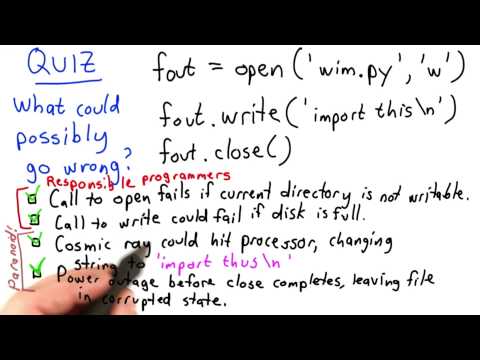 QUIZ
What could
possibly
go wrong?
fout = open('wim.py', 'w')
fout.write('import this\n')
fout.close()
Responsible programmers
Call to open fails if current directory is not writable.
Call to write could fail if disk is full.
Paranoid!
Cosmic ray could hit processor, changing
string to 'import thus\n'
Power outage before close completes, leaving file
in corrupted state.